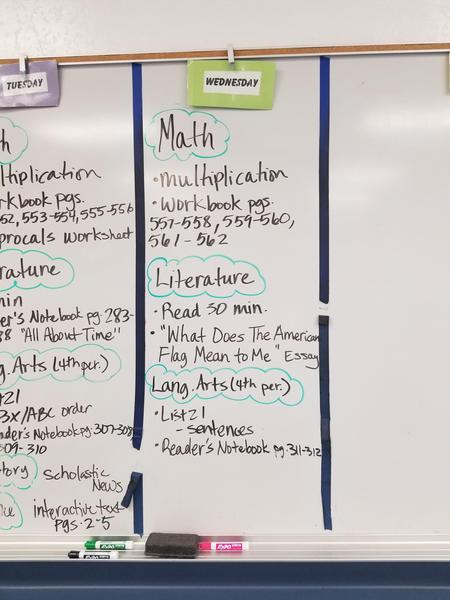 TUESDAY
ltiplication
rkbook pgs.
52, 553-554, 555-556
procals worksheet
rature
min
er's Notebook pg. 283-
38 "All About Time"
g. Arts (4th per.)
t 21
3x/ABC order
ader's Notebook pg. 307-308
309-310
tory Scholastic
News
interactive text
pgs. 2-5
WEDNESDAY
Math
• multiplication
• Workbook pgs.
557-558, 559-560,
561-562
Literature
• Read 30 min.
• "What Does The American
Flag Mean to Me" Essay
Lang. Arts (4th per.)
• List 21
- sentences
• Reader's Notebook pg. 311-312
EXPO